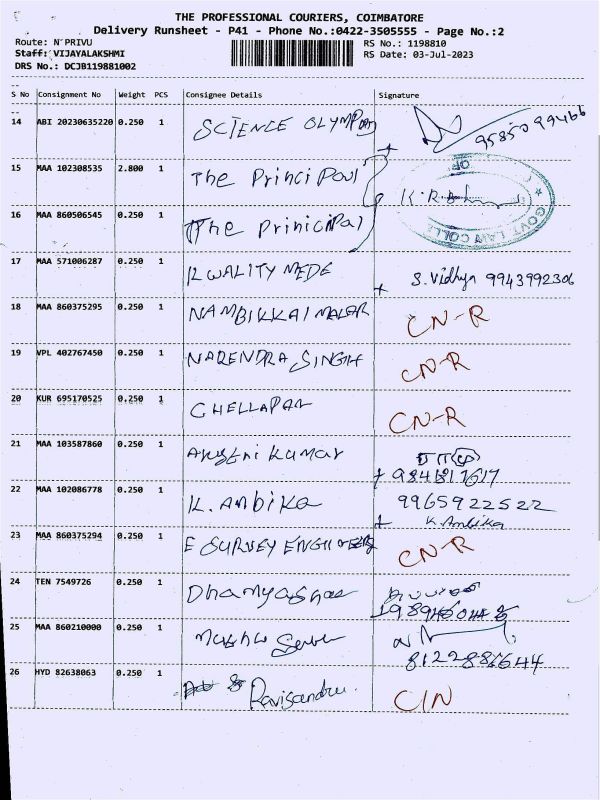 THE PROFESSIONAL COURIERS, COIMBATORE
Delivery Runsheet - P41 - Phone No.:0422-3505555 - Page No.:2
Route: N PRIVU RS No.: 1198810
Staff: VIJAYALAKSHMI RS Date: 03-Jul-2023
DRS No.: DCJB119881002
S No Consignment No Weight PCS Consignee Details Signature
14 ABI 20230635220 0.250 1 SCIENCE OLYMPOD 9585099466
15 MAA 102308535 2.800 1 The Principal
GOVT LAW COLLE
16 MAA 860506545 0.250 1 The Prinicipal
17 MAA 571006287 0.250 1 KWALITY MEDE S. Vidhya 9943992306
18 MAA 860375295 0.250 1 NAMBIKKAI MALAR CN-R
19 VPL 402767450 0.250 1 NARENDRA SINGH CN-R
20 KUR 695170525 0.250 1 CHELLAPAN CN-R
21 MAA 103587860 0.250 1 Kumar 9841817617
22 MAA 102086778 0.250 1 K. Ambika 9965922522
K. Ambika
23 MAA 860375294 0.250 1 E SURVEY CN-R
24 TEN 7549726 0.250 1
25 MAA 860210000 0.250 1
26 HYD 82638063 0.250 1 CIN